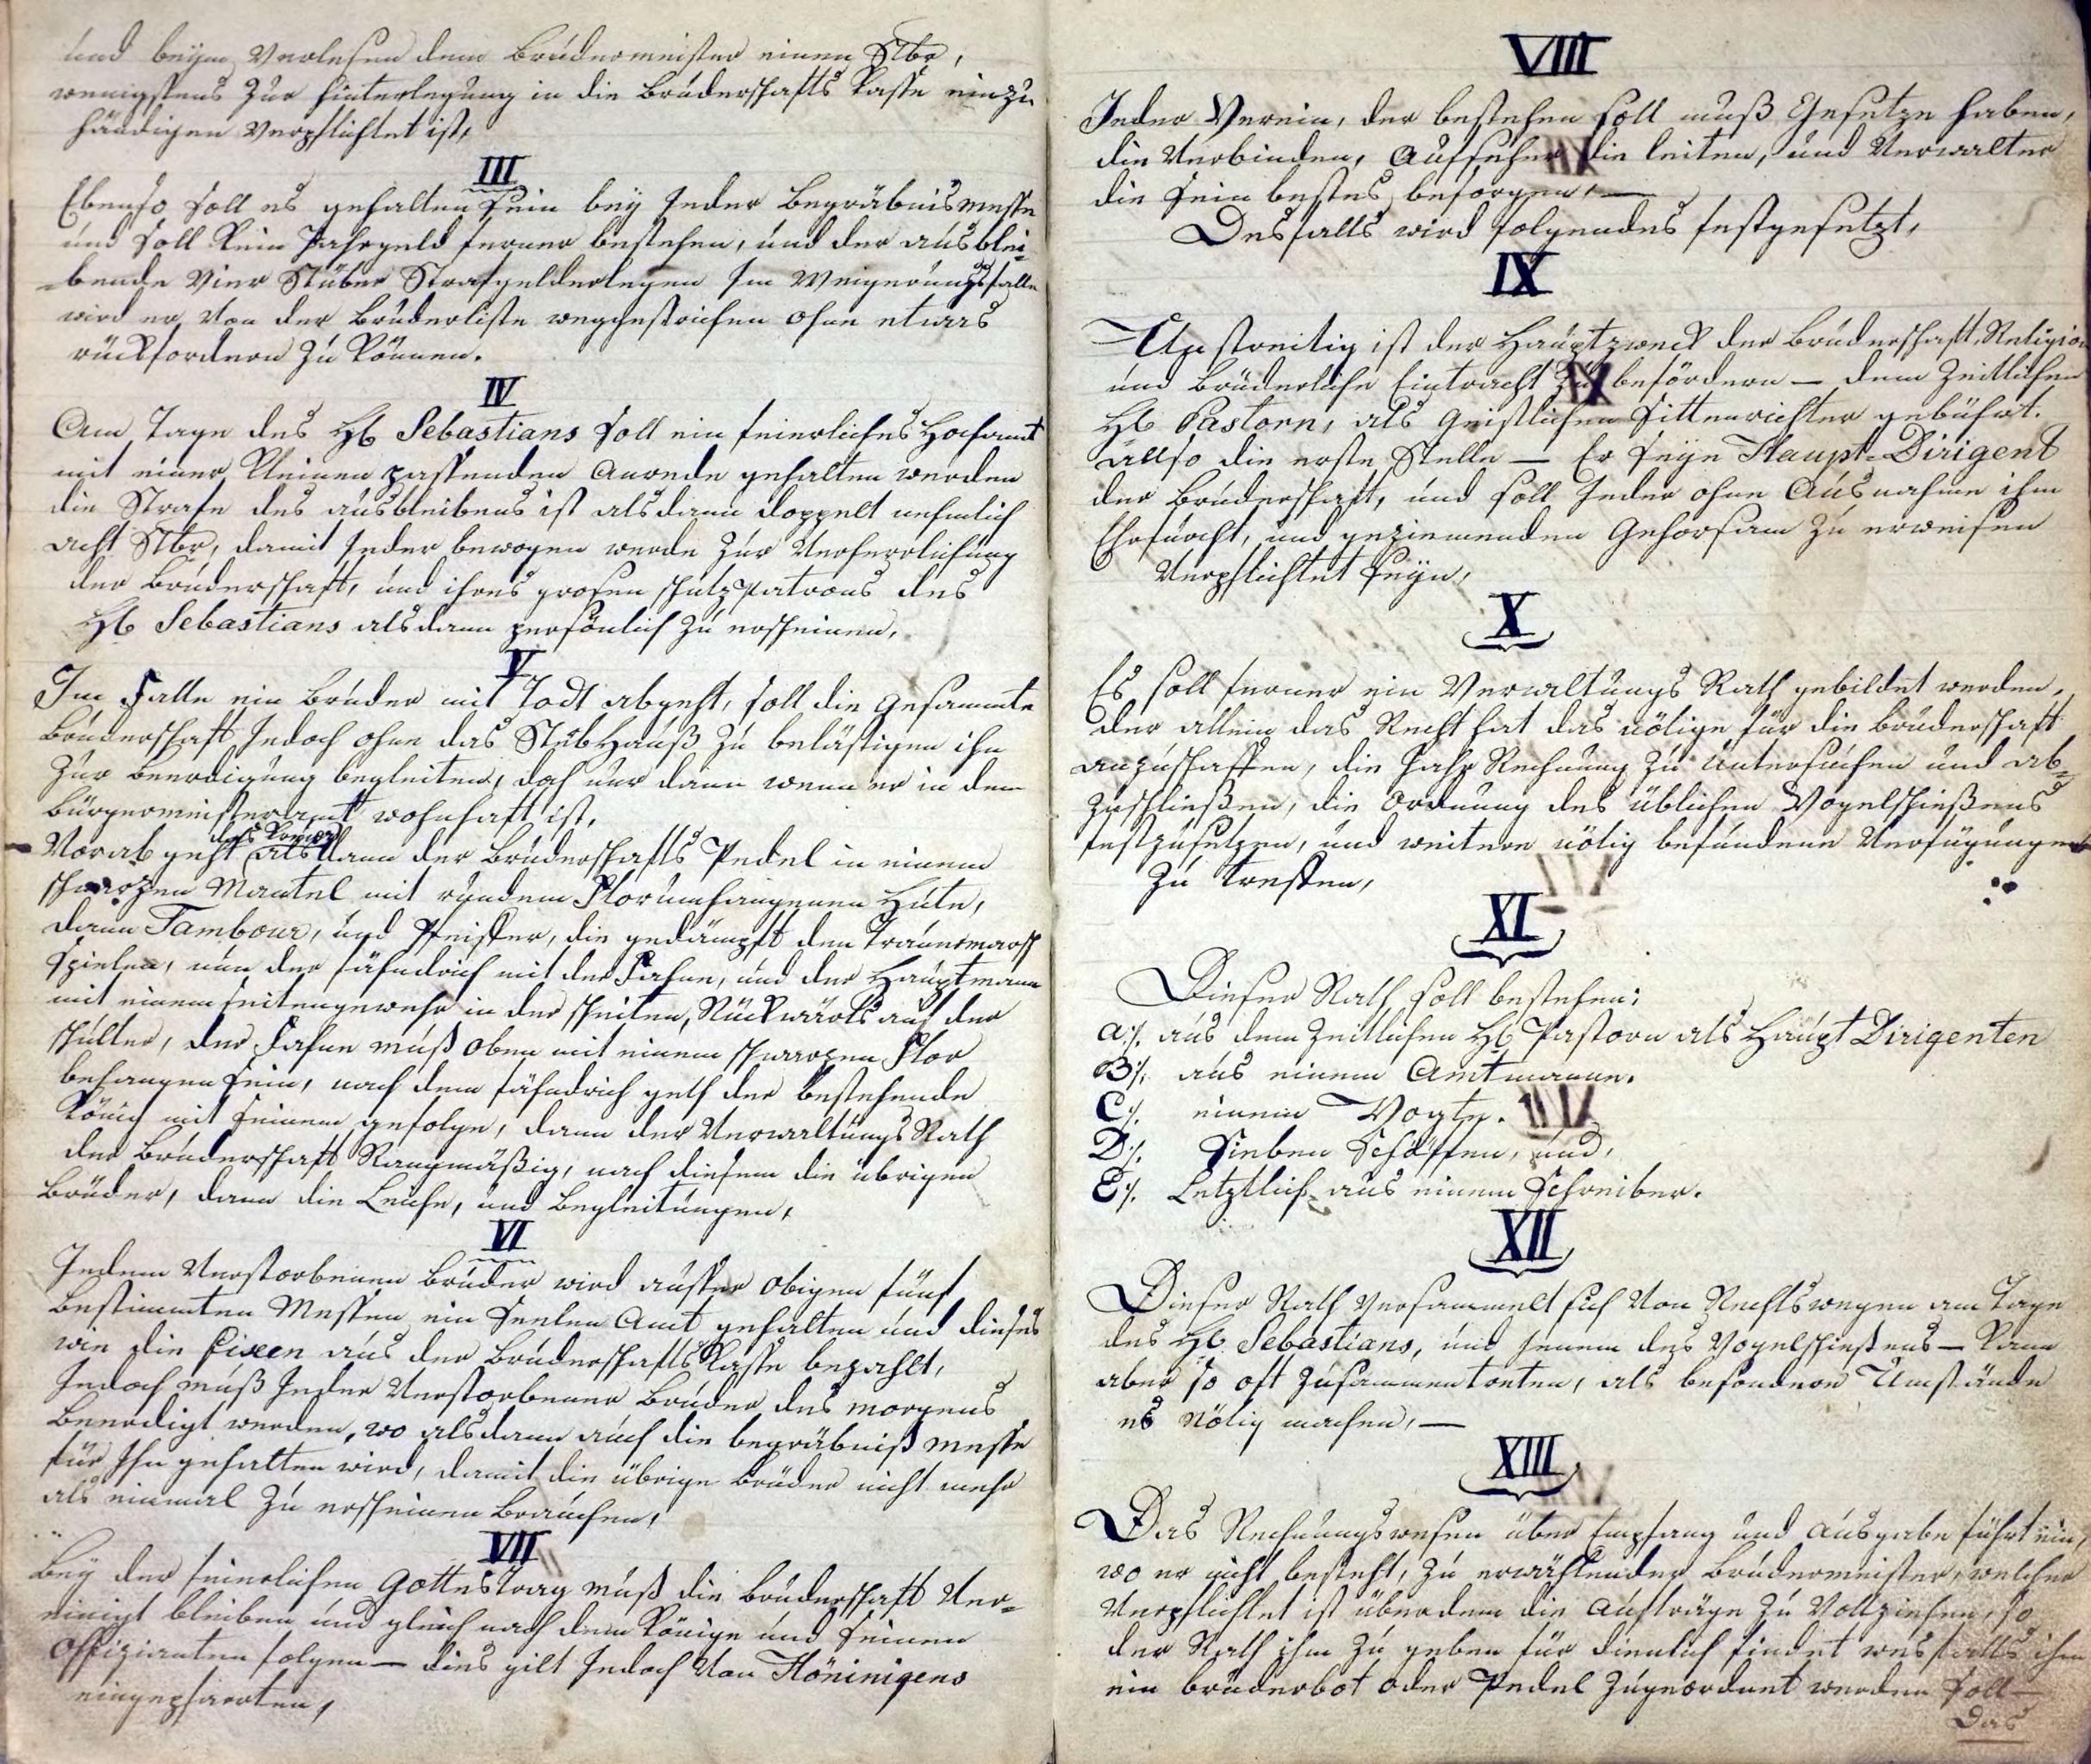 und beÿm Verlesen dem Brudermeister einen Stbr,
wenigstens zur Hinterlegung in die Bruderschafts Kasse einzu
händigen Verpflichtet ist,
III
Ebenso soll es gehalten sein beÿ Jeder Begräbnismesse
und soll kein Jahrgeld ferner bestehen, und der ausblei-
-bende Vier Stüber Strafgelderlegen Im Weigerungsfalle
wird er Von der Bruderliste weggestrichen ohne etwas
rückfordern zu können.
IV
Am Tage des Hl Sebastians soll ein feierliches Hochamt
mit einer kleinen passenden Anrede gehalten werden
die Strafe des ausbleibens ist alsdann doppelt nehmlich
acht Stbr, damit Jeder bewogen werde zur Verherrlichung
der Bruderschaft, und ihres grosen schutzpatrons des
Hl Sebastians alsdann persönlich zu erscheinen,
V
Im Falle ein Bruder mit Todt abgeht, soll die Gesammte
Bruderschaft Jedoch ohne das Sterbhauß zu belästigen ihn
zur Beerdigung begleiten, doch nur dann wenn er in dem
Bürgermeisteramt wohnhaft ist,
das Kreuz
Vorab geht alsdann der Bruderschafts Pedel in einem
schwarzen Mantel mit rundem Florumhangenen Hute,
dann Tambour, und Pfeiffer, die gedämpft den Trauermarsch
spielen, nun der fähndrich mit der Fahne, und der Hauptmann
mit einem seitengewehr in der scheiten, Rückwärts auf der
schulter, der Fahne muß oben mit einem schwarzen Flor
behangen sein, nach dem fähndrich geth der bestehende
König mit seinem gefolge, dann der Verwaltungs Rath
der Bruderschaft Rangmäßig, nach diesem die übrigen
Brüder, dann die Leiche, und Begleitungen,
VI
Jedem Verstorbenen Bruder wird ausser obigen fünf
bestimmten Messen ein Seelen Amt gehalten und dieses
wie die Eixeen aus der Bruderschafts Kasse bezahlt,
Jedoch muß Jeder Verstorbener Bruder des morgens
Beerdigt werden, wo alsdann auch die begräbniß messe
für Ihn gehalten wird, damit die übrige Brüder nicht mehr
als einmal zu erscheinen brauchen,
VII
Beÿ der feierlichen Gottestrag muß die Bruderschaft Ver-
einigt bleiben und gleich nach dem Könige und seinen
Offizianten folgen — dies gilt Jedoch Von Höninigens
eingepfarrten,
VIII
Jeder Verein, der bestehen soll muß Gesetze haben,
die Verbinden, Aufseher die leiten, und Verwalter
die sein bestes besorgen, —
Desfalls wird folgendes festgesetzt,
IX
Unstreitig ist der Hauptzweck der Bruderschaft, Religion
und Brüderliche Eintracht zu befördern — dem zeitlichen
Hl Pastorn, als Geistlichen Sittenrichter gebührt.
allso die erste Stelle — Er seÿe Haupt-Dirigent
der Bruderschaft, und soll Jeder ohne Ausnahme ihm
Ehrfurcht, und geziemenden Gehorsam zu erweisen
Verpflichtet seÿn,
X
Es soll ferner ein Verwaltungs Rath gebildet werden,
der allein das Recht hat das nötige für die Bruderschaft
anzuschaffen, die Jahr Rechnung zu Untersuchen und ab-
zuschließen, die Ordnung des üblichen Vogelschießens
festzusetzen, und weitere nötig befundene Verfügungen
zu treffen,
XI
Dieser Rath soll bestehen:
a:/. aus dem Zeitlichen Hl Pastorn als Haupt Dirigenten
B:/. aus einem Amtmanne.
C:/. einem Vogte.
D:/. Sieben Schöffen, und,
E:/. Letztlich aus einem Schreiber.
XII
Dieser Rath Versammelt sich Von Rechtswegen am Tage
des Hl. Sebastians, und Jenem des Vogelschießens — kann
aber so oft zusammentreten, als besondere Umstände
es nötig machen, —
XIII
Das Rechnungswesen über Empfang und Ausgabe führt ein,
wo er nicht besteht, zu erwählender Brudermeister, welcher
Verpflichtet ist überdem die Aufträge zu Vollziehen, so
der Rath ihm zu geben für dienlich findet wesfalls ihm
ein bruderbot oder Pedel zugeordnet werden soll —
Das